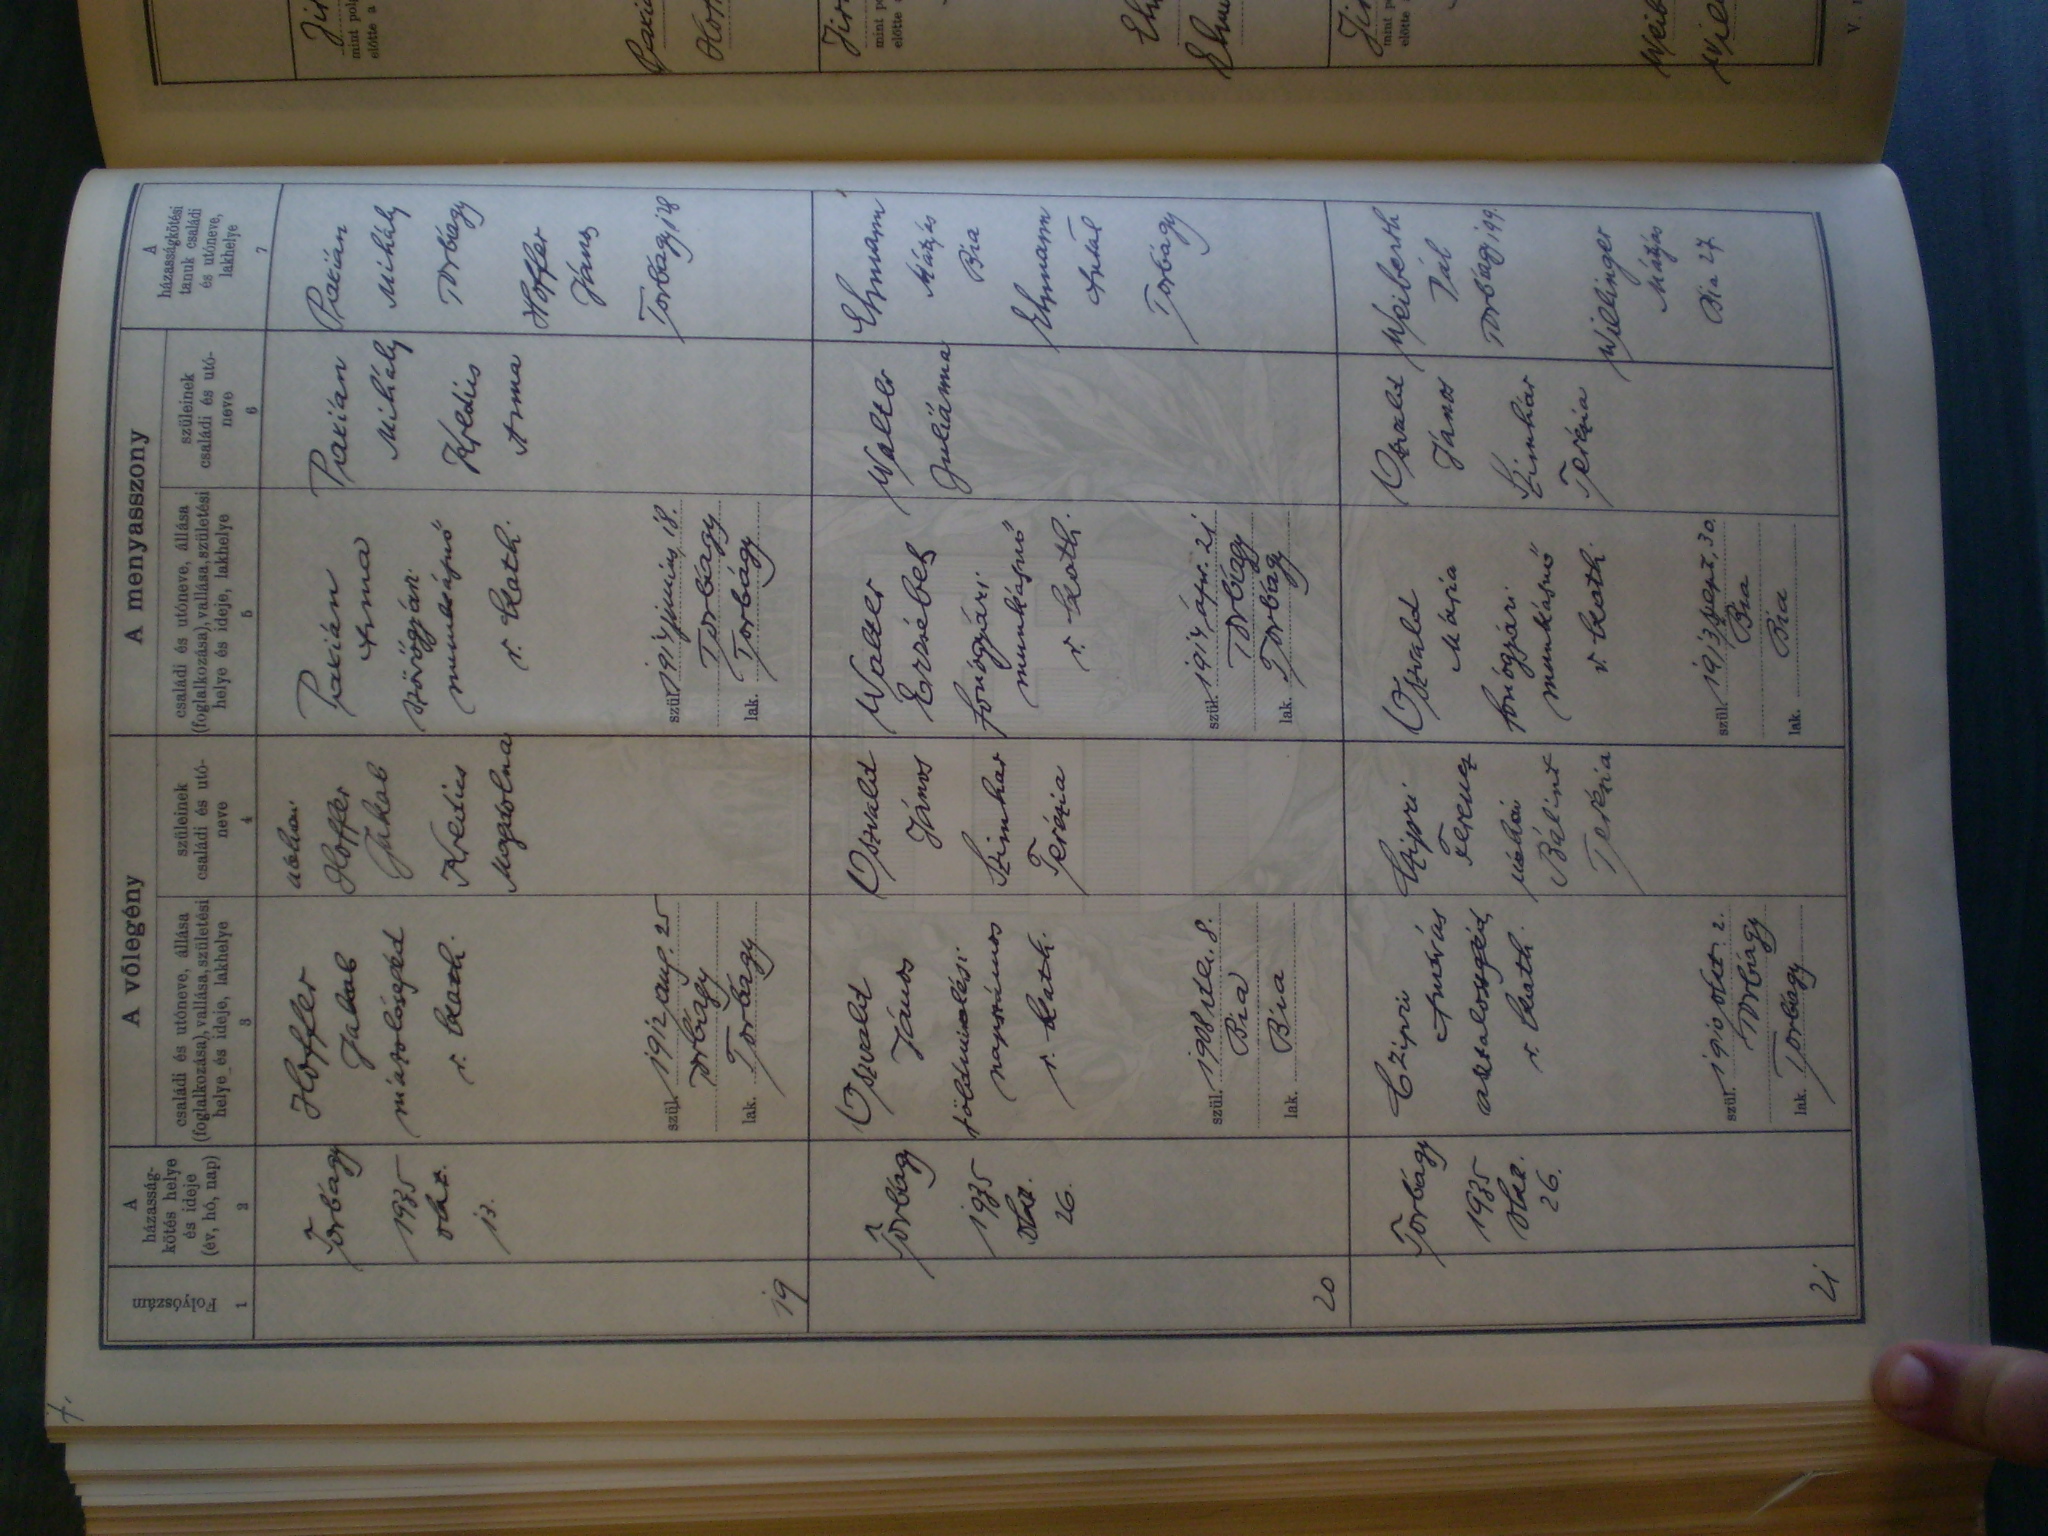 A
házasság-
kötés helye
és ideje
(év, hó, nap)
2
Folyószám
1
A vőlegény
családi és utóneve, állása
(foglalkozása), vallása, születési
helye és ideje, lakhelye
3
szüleinek
családi és utó-
neve
4
A menyasszony
családi és utóneve, állása
(foglalkozása), vallása, születési
helye és ideje, lakhelye
5
szüleinek
családi és utó-
neve
6
A
házasságkötési
tanuk családi
és utóneve,
lakhelye
7
19
Torbágy
1935
okt.
13.
Hoffer
Jakab
r. kath.
szül. 1912 aug. 25
Torbágy
lak. Torbágy
Hoffer
Jakab
Kredics
Magdolna
Pakián
Anna
munkásnő
r. kath.
szül. 1914 június 18.
Torbágy
lak. Torbágy
Pakián
Mihály
Anna
Pakián
Mihály
Torbágy
Hoffer
János
Torbágy 128
20
Torbágy
1935
okt.
26.
Oszvald
János
földmivelési
napszámos
r. kath.
szül. 1908 8.
Bia
lak. Bia
Oszvald
János
Szimhar
Terézia
Walter
Erzsébet
fonógyári
munkásnő
r. kath.
szül. 1914 ápr. 21
Torbágy
lak. Torbágy
Walter
Juliánna
Ehmann
Mátyás
Bia
Ehmann
Antal
Torbágy
21
Torbágy
1935
okt.
26.
Czipri
András
asztalossegéd
r. kath.
szül. 1910 okt. 2.
Torbágy
lak. Torbágy
Czipri
Ferencz
néhai
Bálint
Terézia
Oszvald
Mária
fonógyári
munkásnő
r. kath.
szül. 1913 szept. 30.
Bia
lak. Bia
Oszvald
János
Szimhár
Terézia
Weiberth
Pál
Torbágy 199.
Willinger
Mátyás
Bia 27.